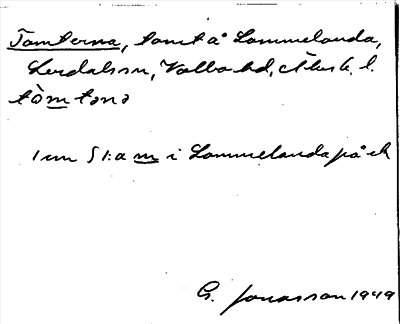 Tomterna, tomt å Lommelanda,
Lerdals sn, Valbo hd, Älvsb. l.
tòmtənə
1 um Sl:a m i Lommelanda på ek
G. Jonasson 1949